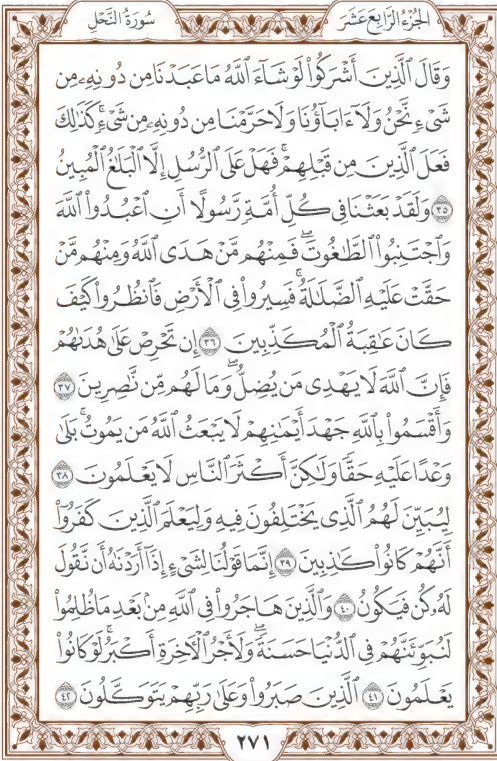 الجزء الرابع عشر
سورة النحل
وَقَالَ ٱلَّذِينَ أَشۡرَكُواْ لَوۡ شَآءَ ٱللَّهُ مَا عَبَدۡنَا مِن دُونِهِۦ مِن
شَيۡءٖ نَّحۡنُ وَلَآ ءَابَآؤُنَا وَلَا حَرَّمۡنَا مِن دُونِهِۦ مِن شَيۡءٖۚ كَذَٰلِكَ
فَعَلَ ٱلَّذِينَ مِن قَبۡلِهِمۡۚ فَهَلۡ عَلَى ٱلرُّسُلِ إِلَّا ٱلۡبَلَٰغُ ٱلۡمُبِينُ
٣٥ وَلَقَدۡ بَعَثۡنَا فِي كُلِّ أُمَّةٖ رَّسُولًا أَنِ ٱعۡبُدُواْ ٱللَّهَ
وَٱجۡتَنِبُواْ ٱلطَّٰغُوتَۖ فَمِنۡهُم مَّنۡ هَدَى ٱللَّهُ وَمِنۡهُم مَّنۡ
حَقَّتۡ عَلَيۡهِ ٱلضَّلَٰلَةُۚ فَسِيرُواْ فِي ٱلۡأَرۡضِ فَٱنظُرُواْ كَيۡفَ
كَانَ عَٰقِبَةُ ٱلۡمُكَذِّبِينَ ٣٦ إِن تَحۡرِصۡ عَلَىٰ هُدَىٰهُمۡ
فَإِنَّ ٱللَّهَ لَا يَهۡدِي مَن يُضِلُّۖ وَمَا لَهُم مِّن نَّٰصِرِينَ ٣٧
وَأَقۡسَمُواْ بِٱللَّهِ جَهۡدَ أَيۡمَٰنِهِمۡ لَا يَبۡعَثُ ٱللَّهُ مَن يَمُوتُۚ بَلَىٰ
وَعۡدًا عَلَيۡهِ حَقّٗا وَلَٰكِنَّ أَكۡثَرَ ٱلنَّاسِ لَا يَعۡلَمُونَ ٣٨
لِيُبَيِّنَ لَهُمُ ٱلَّذِي يَخۡتَلِفُونَ فِيهِ وَلِيَعۡلَمَ ٱلَّذِينَ كَفَرُوٓاْ
أَنَّهُمۡ كَانُواْ كَٰذِبِينَ ٣٩ إِنَّمَا قَوۡلُنَا لِشَيۡءٍ إِذَآ أَرَدۡنَٰهُ أَن نَّقُولَ
لَهُۥ كُن فَيَكُونُ ٤٠ وَٱلَّذِينَ هَاجَرُواْ فِي ٱللَّهِ مِنۢ بَعۡدِ مَا ظُلِمُواْ
لَنُبَوِّئَنَّهُمۡ فِي ٱلدُّنۡيَا حَسَنَةٗۖ وَلَأَجۡرُ ٱلۡأٓخِرَةِ أَكۡبَرُۚ لَوۡ كَانُواْ
يَعۡلَمُونَ ٤١ ٱلَّذِينَ صَبَرُواْ وَعَلَىٰ رَبِّهِمۡ يَتَوَكَّلُونَ ٤٢
٢٧١